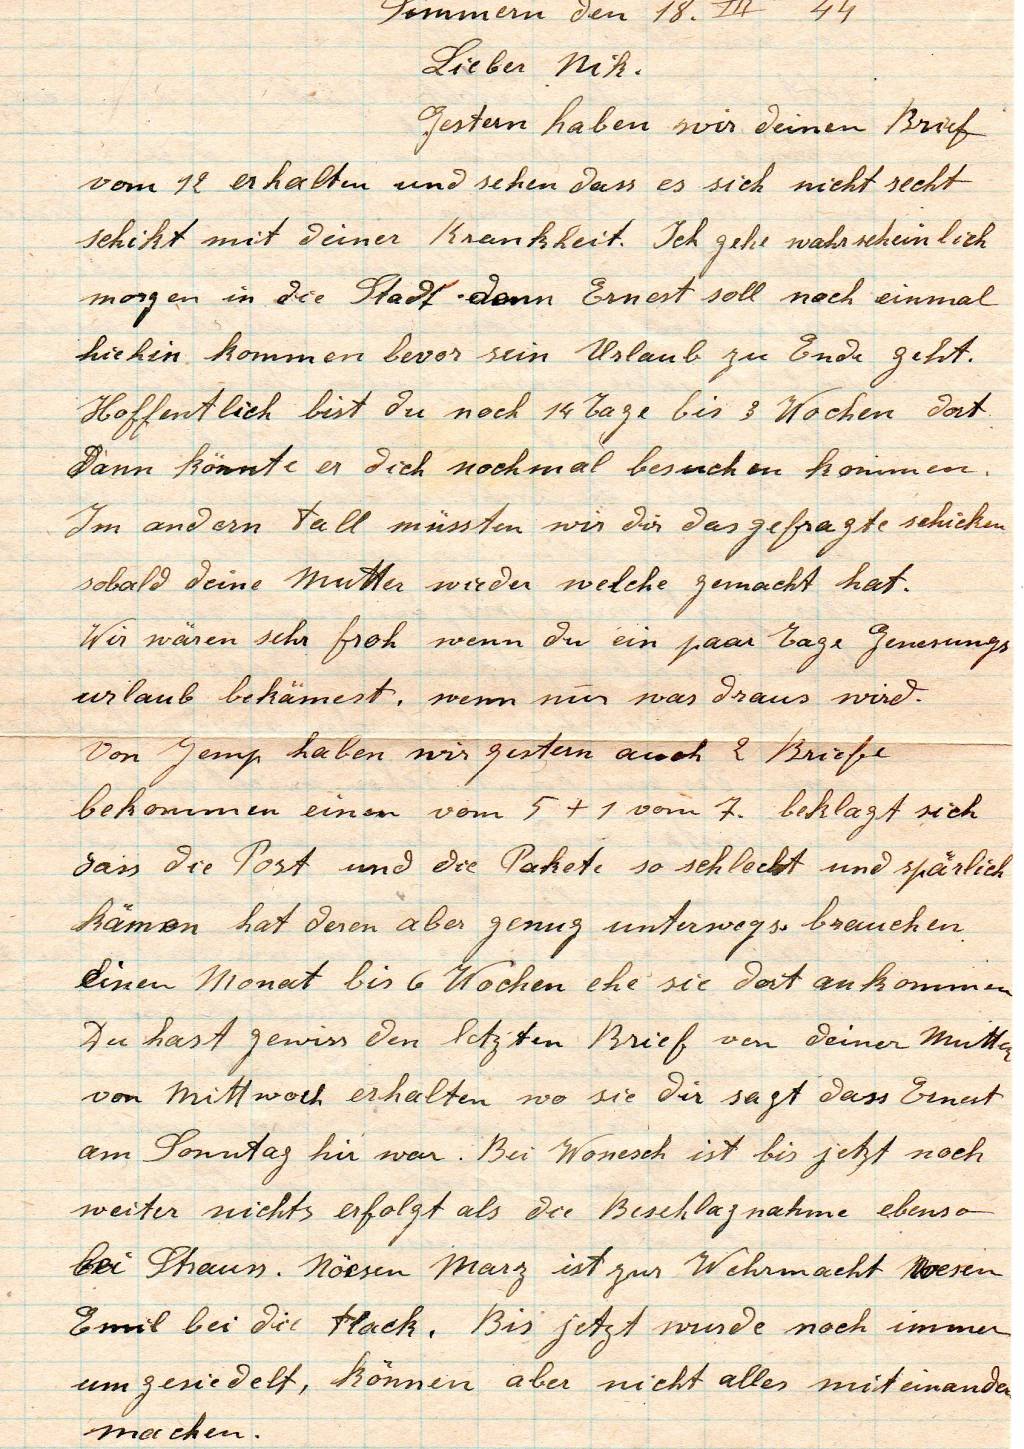 Sommern den 18. III 44
Lieber Nik.
Gestern haben wir deinen Brief
vom 12 erhalten und sehen dass es sich nicht recht
schikt mit deiner Krankheit. Ich gehe wahrscheinlich
morgen in die Stadt denn Ernest soll noch einmal
hiehin kommen bevor sein Urlaub zu Ende geht.
Hoffentlich bist du noch 14 Tage bis 3 Wochen dort
Dann könnte er dich nochmal besuchen kommen.
Im andern Fall müssten wir dir das gefragte schicken
sobald deine Mutter wieder welche gemacht hat.
Wir wären sehr froh wenn du ein paar Tage Genesungs
urlaub bekämest, wenn nur was draus wird.
Von Jemp haben wir gestern auch 2 Briefe
bekommen einen vom 5 + 1 vom 7. beklagt sich
dass die Post und die Pakete so schlecht und spärlich
kämen hat deren aber genug unterwegs. brauchen
einen Monat bis 6 Wochen ehe sie dort ankommen
Du hast gewiss den letzten Brief von deiner Mutter
von Mittwoch erhalten wo sie dir sagt dass Ernest
am Sonntag hir war. Bei Wonesch ist bis jetzt noch
weiter nichts erfolgt als die Beschlagnahme ebenso
bei Strauss. Nöesen Marz ist zur Wehrmacht Noesen
Emil bei die Flack. Bis jetzt wurde noch immer
umgesiedelt, können aber nicht alles miteinander
machen.